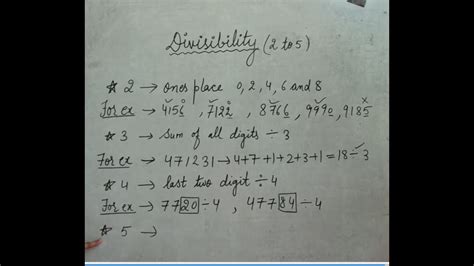 Divisibility (2 to 5)
☆ 2 → ones place 0, 2, 4, 6 and 8
For ex → 4156, 7122, 8766, 9990, 9185
☆ 3 → sum of all digits ÷ 3
For ex → 471231 → 4+7+1+2+3+1 = 18 ÷ 3
☆ 4 → last two digit ÷ 4
For ex → 7720 ÷ 4, 47784 ÷ 4
☆ 5 →